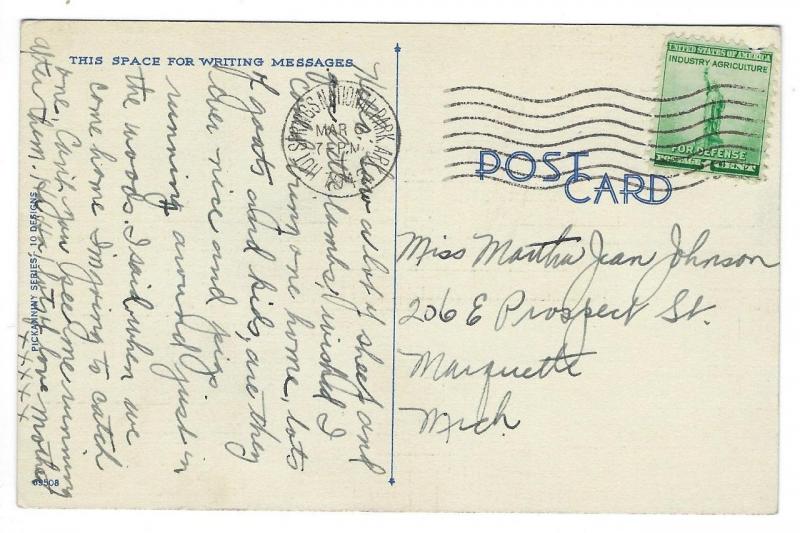 THIS SPACE FOR WRITING MESSAGES
We saw a lot of sheep and
little lambs, wished I
could bring one home, lots
of goats and kids, are they
ever nice and pigs
running around just in
the woods. I said when we
come home I'm going to catch
one, Can't you see me running
after them. love Mother
x x x x
PICKANINNY SERIES - 10 DESIGNS
69508
HOT SPRINGS NATIONAL PARK, ARK.
MAR 6
7 PM
UNITED STATES OF AMERICA
INDUSTRY AGRICULTURE
FOR DEFENSE
POSTAGE 1 CENT
POST
CARD
Miss Martha Jean Johnson
206 E Prospect St.
Marquette
Mich